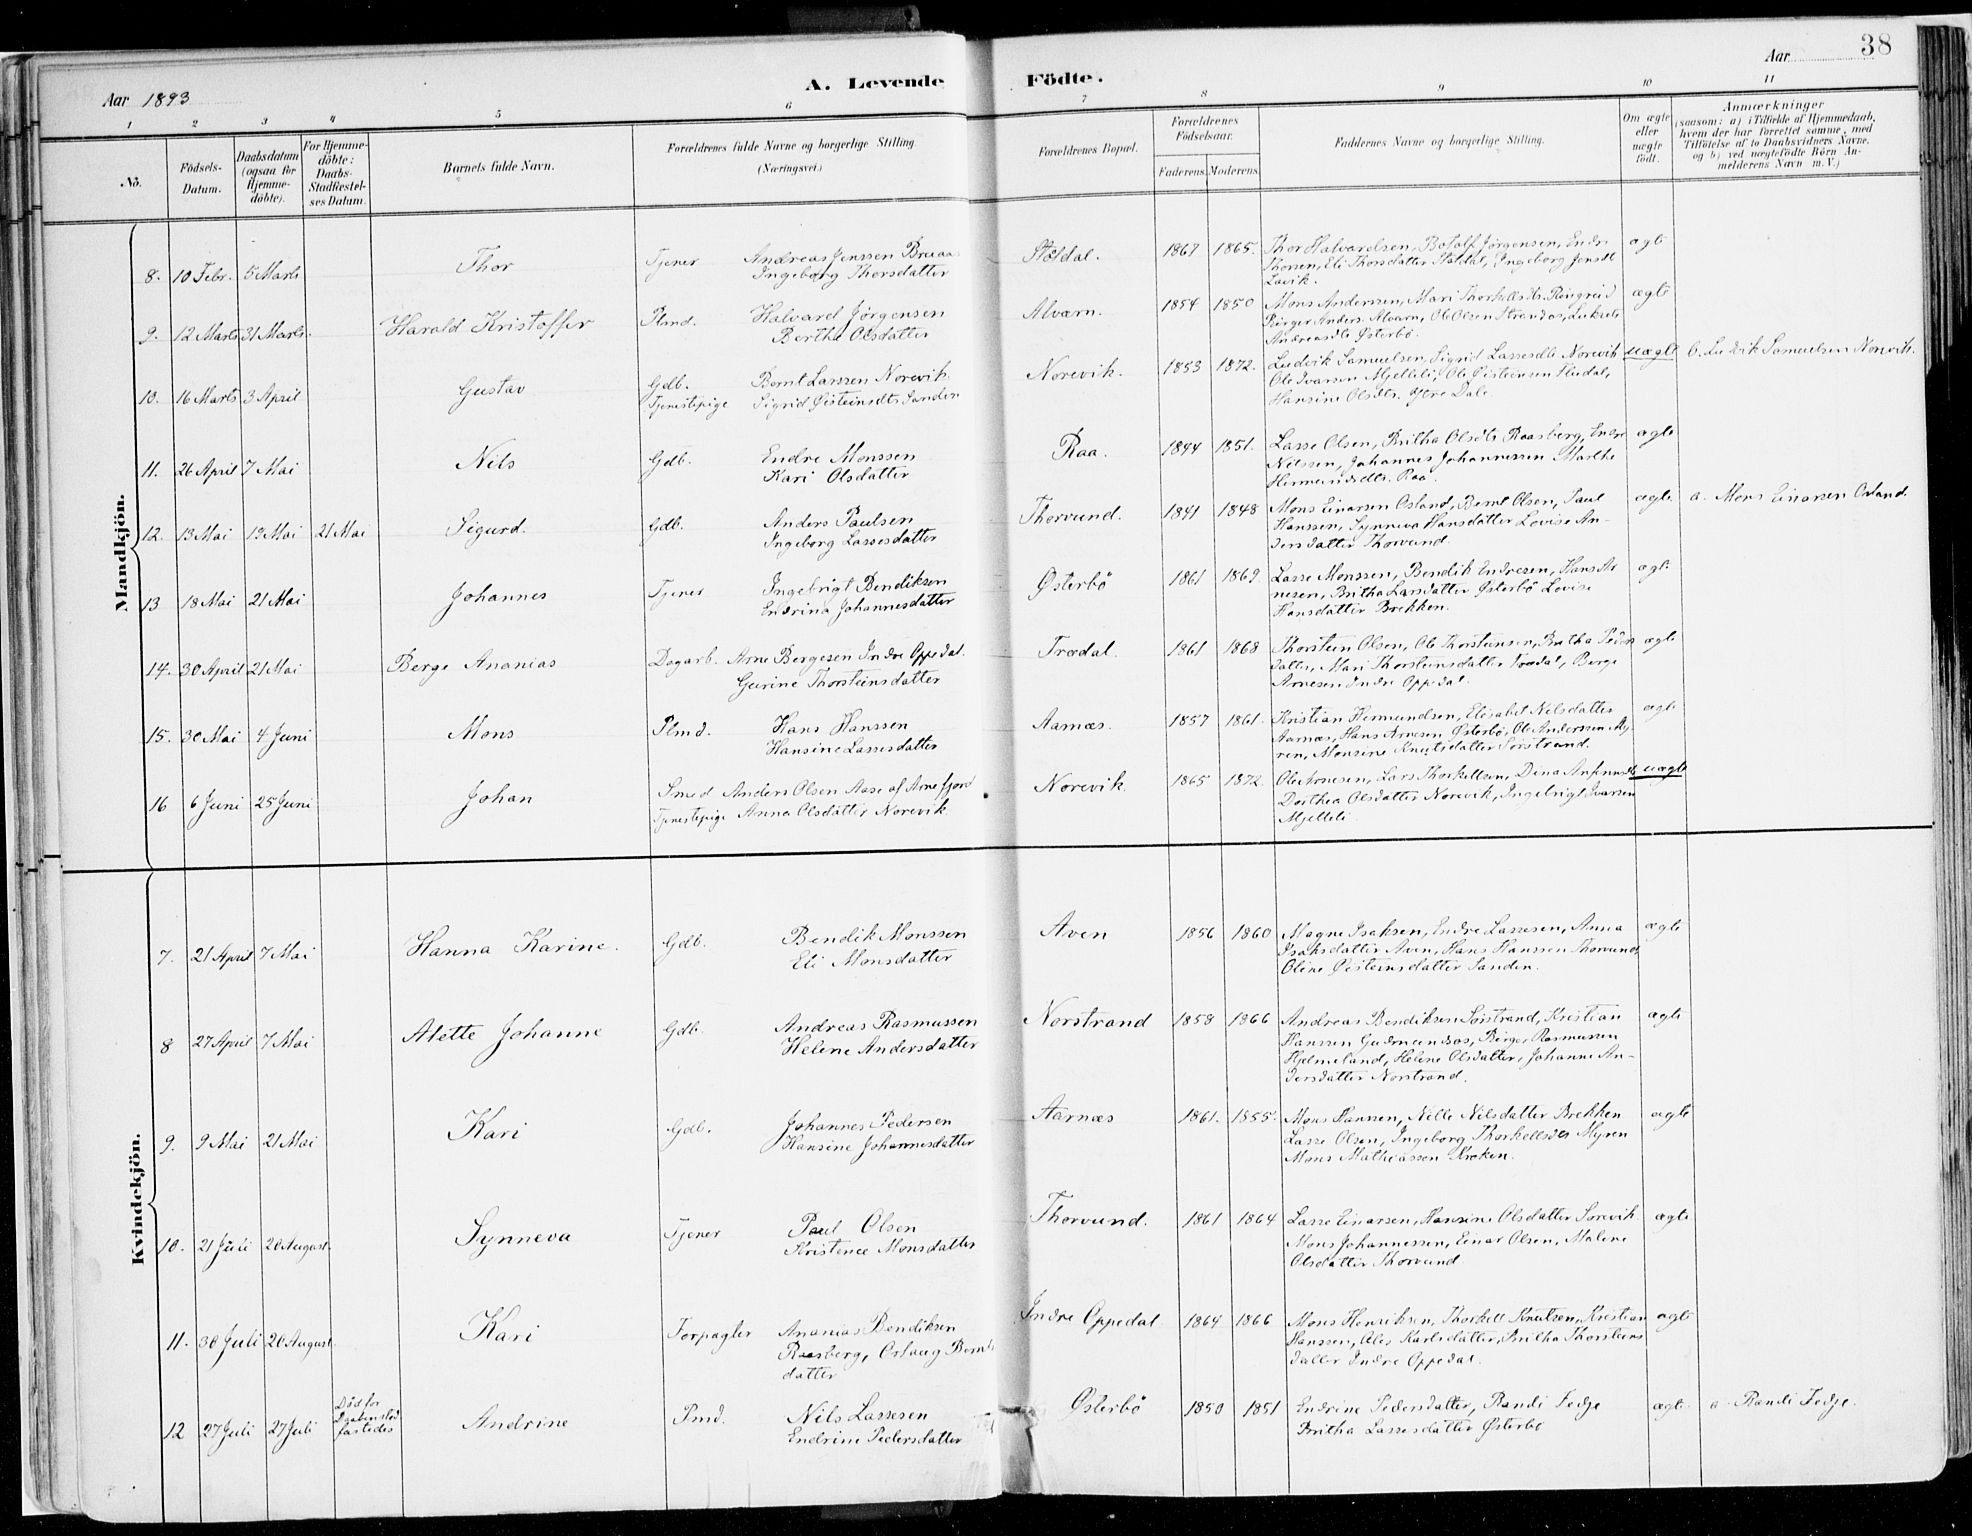 Aar 1893
A. Levende Födte.
Aar 38
1 2 3 4 5 6 7 8 9 10 11
No.
Födsels-Datum.
Daabsdatum (ogsaa for Hjemme-döbte).
For Hjemme-döbte: Daabs-Stadfæstel-ses Datum.
Barnets fulde Navn.
Forældrenes fulde Navne og borgerlige Stilling (Næringsvei)
Forældrenes Bopæl.
Forældrenes Födselsaar.
Faderens. Moderens.
Faddernes Navne og borgerlige Stilling.
Om ægte eller uægte födt.
Anmærkninger
(saasom: a) i Tilfælde af Hjemmedaab,
hvem der har forrettet samme, med
Tilföielse af to Daabsvidners Navne,
og b) ved uægtefödte Börn An-
melderens Navn m. V.)
Mandkjön.
8. 10 Febr. 5 Marts Thor Tjener Andreas Jenssen
Ingeborg Thorsdatter
Støldal. 1867 1865. Thor Halvardsen, Botolf Jørgensen, Endre
Thorsen, Eli Thorsdatter Støldal, Ingeborg Jensdt
Lavik. ægte
9. 12 Marts 31 Marts. Harald Kristoffer Plmd. Halvard Jörgensen
Berthe Olsdatter
Alværn. 1854 1850 Mons Anderssen, Mari Thorkellsdtr. Ringreid
Birger Anders. Alværn, Ole Olsen
Andreasdtr Østerbö. ægte
10. 16 Marts 3 April Gustav Gdb. Bernt Larssen Norevik
Tjenestepige Sigrid Øisteinsdtr Sanden
Norevik. 1853 1872. Ludvik Samuelsen, Sigrid Lassesdtr Norevik
Ole Ivarsen Mjelleli, Ole Øisteinsen
Hansine Olsdtr. Ytre Dale. uægte b. Ludvik Samuelsen Norevik.
11. 26 April 7 Mai Nils Gdb. Endre Monssen
Kari Olsdatter
Raa. 1844 1851. Lasse Olsen, Britha Olsdtr Raasberg, Endre
Nilssen, Johannes Johannessen Marthe
Hermundsdtr. Raa. ægte
12. 13 Mai 19 Mai 21 Mai Sigurd. Gdb. Anders Paulsen
Ingeborg Lassesdatter
Thorvund. 1841 1848 Mons Einarsen Osland, Bernt Olsen, Paul
Hanssen, Synneva Hansdatter Lovise An-
dersdatter Thorvund. ægte a. Mons Einarsen Osland.
13 18 Mai 21 Mai Johannes Tjener Ingebrigt Bendiksen
Endrina Johannesdatter
Østerbö 1861 1869 Lasse Monssen, Bendik Endresen, Hans Ar
nesen, Britha Larsdatter Østerbö Lovise
Hansdatter Brekken. ægte
14. 30 April 21 Mai Berge Ananias Dagarb. Arne Bergesen Indre Oppedal.
Gurine Thorsteinsdatter
Trædal. 1861 1868 Thorstein Olsen, Ole Thorsteinsen, Britha Peders
datter, Mari Thorsteinsdatter Trædal, Berge
Arnesen Indre Oppedal. ægte
15. 30 Mai 4 Juni Mons Plmd. Hans Hanssen
Hansine Lassesdatter
Aarnæs. 1857 1861. Kristian Hermundsen, Elisabet Nilsdatter
Aarnæs, Hans Arnesen Østerbö, Ole Anderssen My
ren, Monsine Knutsdatter Sörstrand. ægte
16 6 Juni 25 Juni Johan Smed Anders Olsen Aase af Arnefjord
Tjenestepige Anna Olsdatter Norevik.
Norevik. 1865 1872. Ole Arnesen, Lars Thorkellsen, Dina Anfinnsdtr
Dorthea Olsdatter Norevik, Ingebrigt Ivarsen
Mjelleli. uægte
Kvindekjön.
7. 21 April 7 Mai Hanna Karine. Gdb. Bendik Monssen
Eli Monsdatter
Aven 1856 1860 Magne Isaksen, Endre Lassesen, Anna
Isaksdatter Aven, Hans Hanssen Thorvund,
Oline Øisteinsdatter Sanden. ægte
8 27 April 7 Mai Alette Johanne Gdb. Andreas Rasmussen
Helene Andersdatter
Norstrand 1858 1866 Andreas Bendiksen Sörstrand, Kristian
Hanssen Birger Rasmussen
Hjelmeland, Helene Olsdatter, Johanne An-
dersdatter Norstrand. ægte
9. 9 Mai 21 Mai Kari Gdb. Johannes Pedersen
Hansine Johannesdatter
Aarnæs 1861. 1855. Mons Hanssen, Nille Nilsdatter Brekken
Lasse Olsen, Ingeborg Thorkellsdtr Myren
Mons Mathiassen Kroken. ægte
10. 21 Juli 20 August. Synneva Tjener Paul Olsen
Kristence Monsdatter
Thorvund. 1861 1864 Lasse Einarsen, Hansine Olsdatter Sörevik
Mons Johannessen, Einar Olsen, Malene
Olsdatter Thorvund. ægte
11. 30 Juli 20 August. Kari Forpagter Ananias Bendiksen
Raasberg, Orlaug Bernts
datter
Indre Oppedal 1864 1866 Mons Henriksen, Thorkell Knutsen, Kristian
Hanssen, Ales Karlsdatter, Britha Thorsteins
datter Indre Oppedal. ægte
12 27 Juli 27 Juli Död för
Daaben stad
fæstedes Andrine Pmd. Nils Lassesen
Endrine Pedersdatter
Østerbö 1850 1851 Endrine Pedersdatter, Randi Fedje
Britha Lassesdatter Østerbö ægte. a. Randi Fedje.